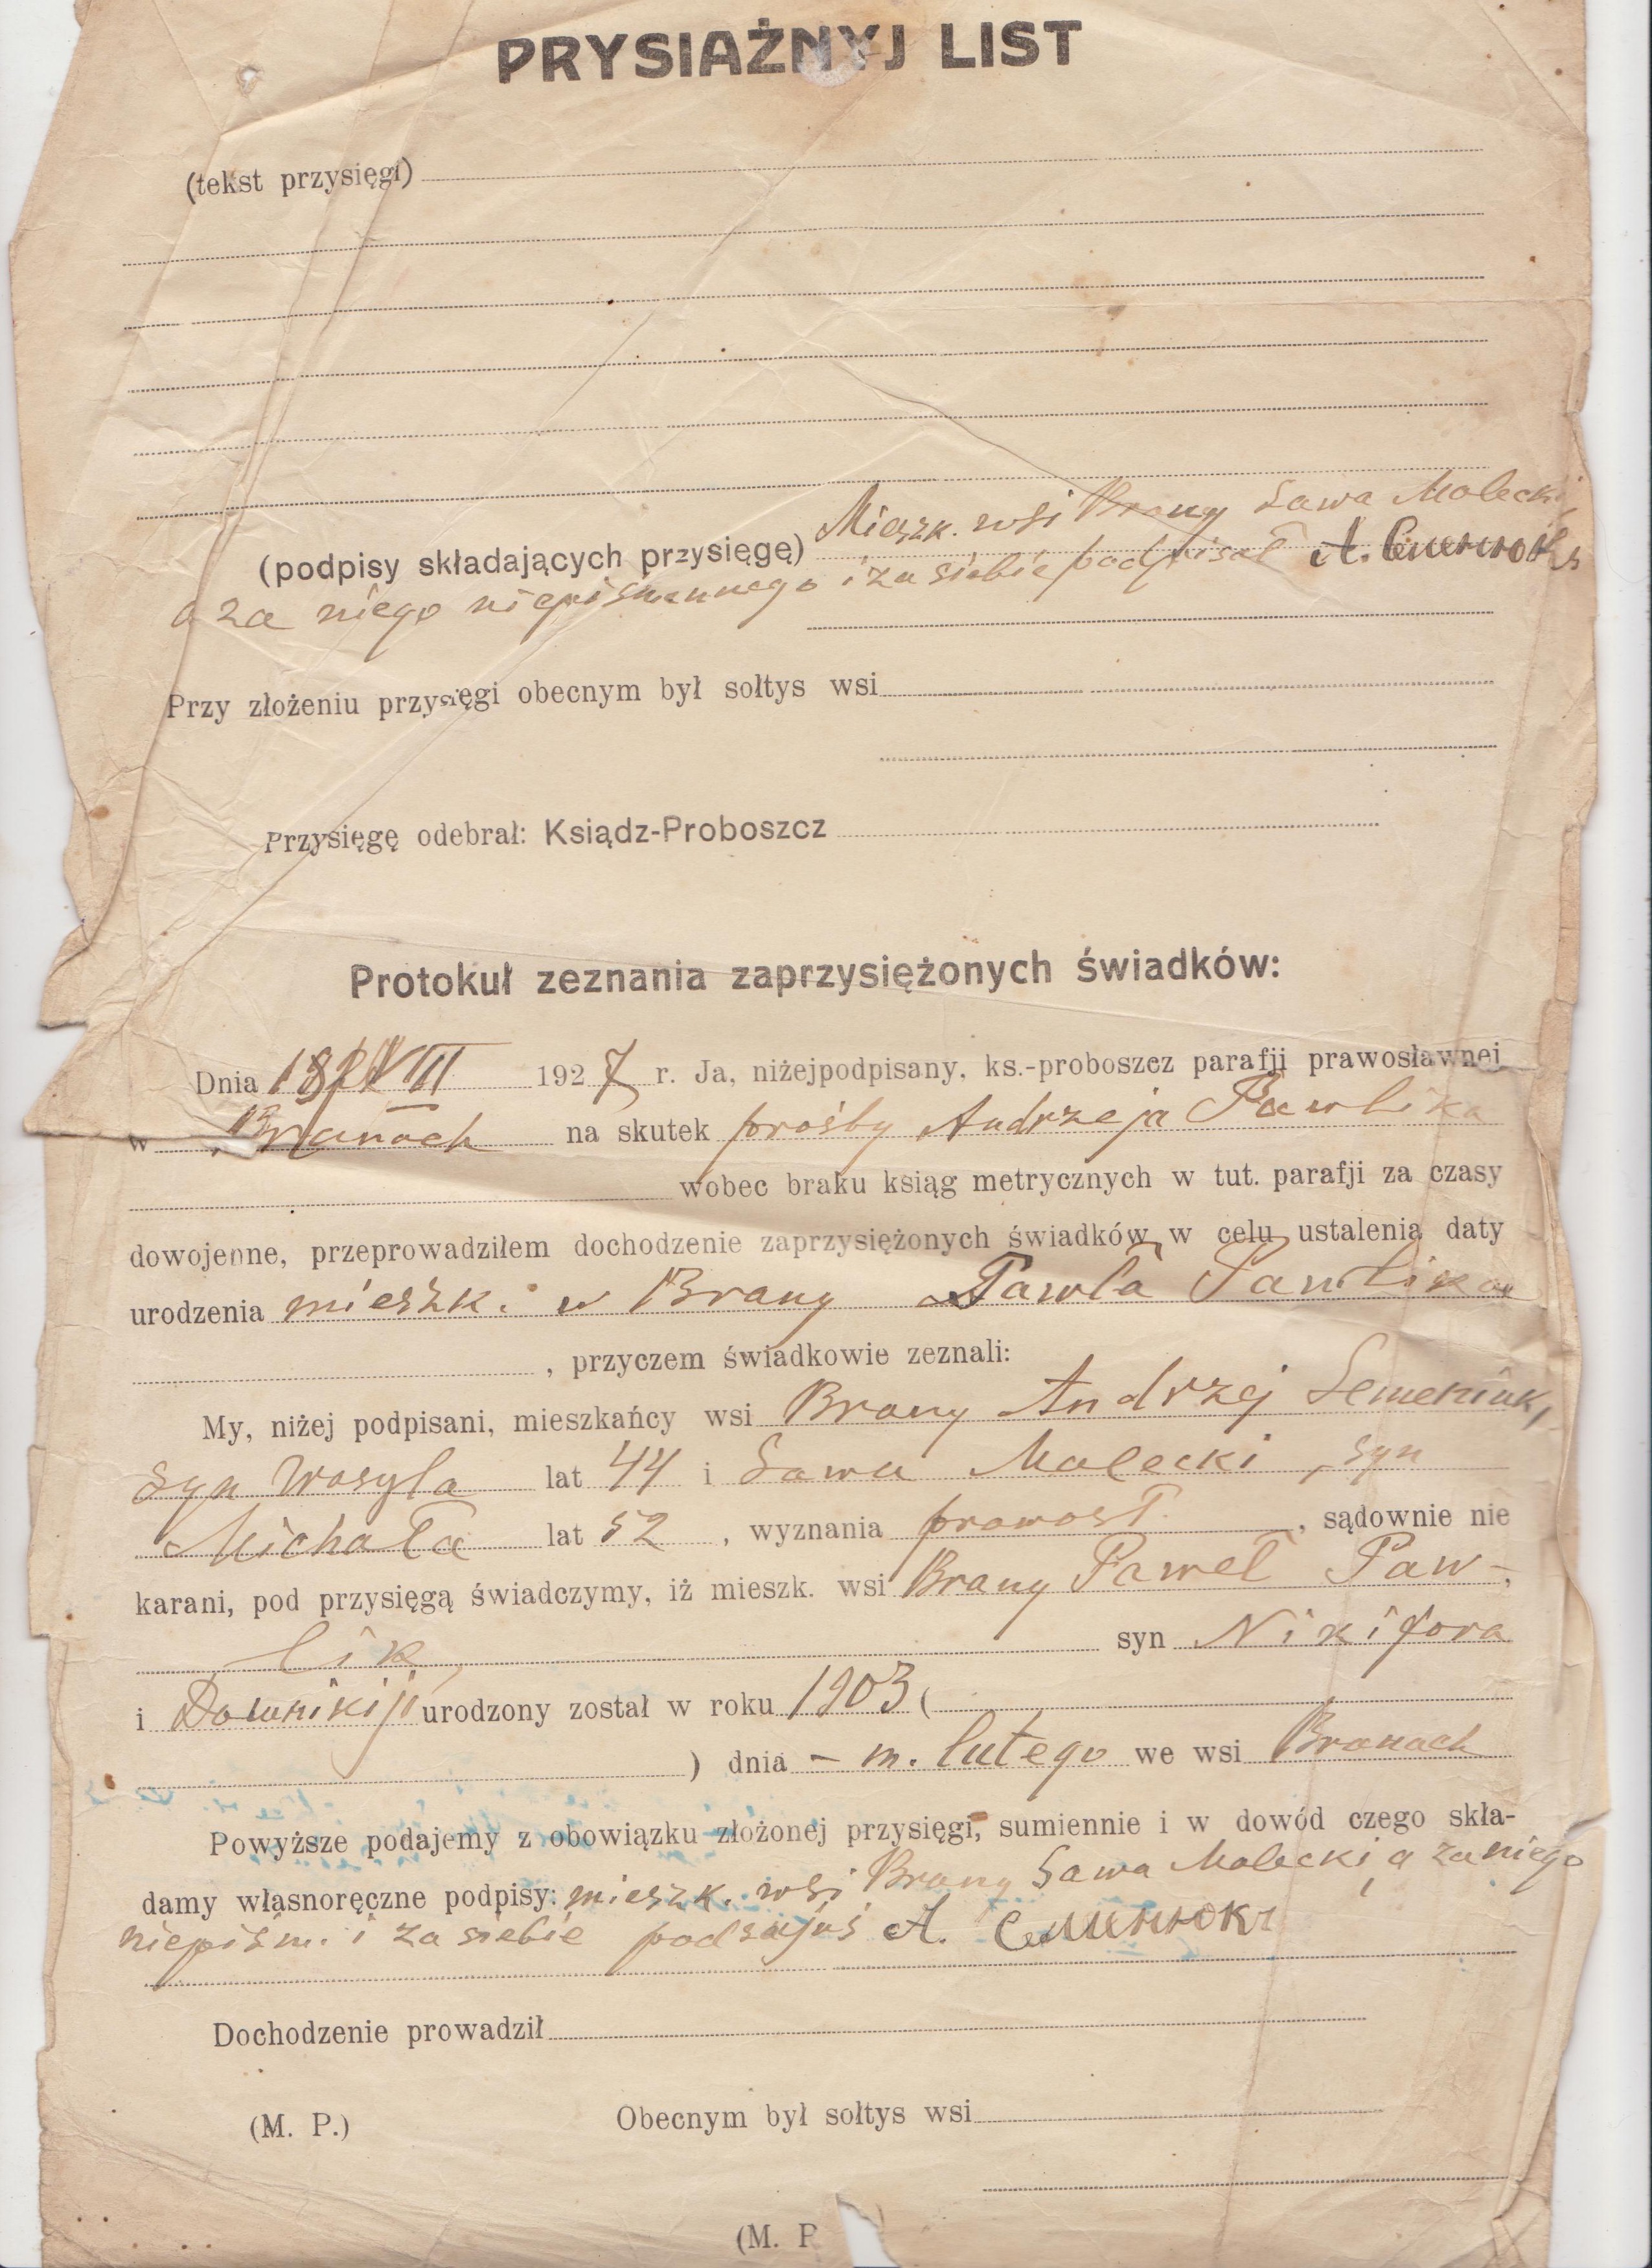 PRYSIAŻNYJ LIST
(tekst przysięgi)
Mieszk. wsi Brany Sawa Malecki,
(podpisy składających przysięgę)
a za niego niepismennego i za siebie podpisał А. Семенюкъ
Przy złożeniu przysięgi obecnym był sołtys wsi
Przysięgę odebrał: Ksiądz-Proboszcz
Protokuł zeznania zaprzysiężonych świadków:
Dnia 18/VIII 1927 r. Ja, niżejpodpisany, ks.-proboszcz parafji prawosławnej
w Branach na skutek prośby Andrzeja Pawlika
wobec braku ksiąg metrycznych w tut. parafji za czasy
dowojenne, przeprowadziłem dochodzenie zaprzysiężonych świadków w celu ustalenia daty
urodzenia mieszk. w Brany Pawła Pawlika
, przyczem świadkowie zeznali:
My, niżej podpisani, mieszkańcy wsi Brany Andrzej Semeniuk,
syn Wasyla lat 44 i Sawa Malecki, syn
Michała lat 52, wyznania prawosł., sądownie nie
karani, pod przysięgą świadczymy, iż mieszk. wsi Brany Paweł Paw-
lik, syn Nikifora
i Domnikiji urodzony został w roku 1903 (
) dnia – m. lutego we wsi Branach
Powyższe podajemy z obowiązku złożonej przysięgi, sumiennie i w dowód czego skła-
damy własnoręczne podpisy: mieszk. wsi Brany Sawa Malecki, a za niego
niepiśm. i za siebie А. Семенюкъ
Dochodzenie prowadził
(M. P.) Obecnym był sołtys wsi
(M. P